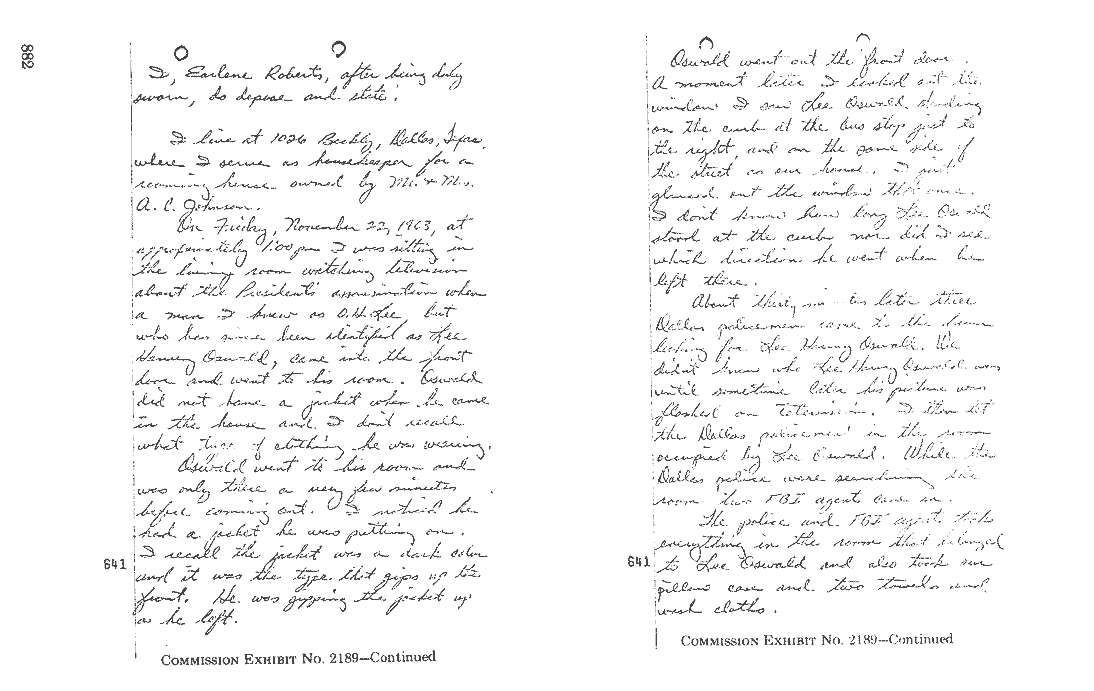 882
I, Earlene Roberts, after being duly
sworn, do depose and state:
I live at 1026 Beckly, Dallas, Texas,
where I serve as housekeeper for a
rooming house owned by Mr. & Mrs.
A. C. Johnson.
On Friday, November 22, 1963, at
approximately 1:00 pm I was sitting in
the living room watching television
about the President's assassination when
a man I knew as O. H. Lee, but
who has since been identified as Lee
Harvey Oswald, came into the front
door and went to his room. Oswald
did not have a jacket when he came
in the house and I don't recall
what type of clothing he was wearing.
Oswald went to his room and
was only there a very few minutes
before coming out. I noticed he
had a jacket he was putting on.
I recall the jacket was a dark color
and it was the type that zips up the
front. He was zipping the jacket up
as he left.
641
COMMISSION EXHIBIT No. 2189—Continued
Oswald went out the front door.
A moment later I looked out the
window. I saw Lee Oswald standing
on the curb at the bus stop just to
the right, and on the same side of
the street as our house. I just
glanced out the window that once.
I don't know how long Lee Oswald
stood at the curb nor did I see
which direction he went when he
left there.
About thirty later three
Dallas policemen came to the house
looking for Lee Harvey Oswald. We
didn't know who Lee Harvey Oswald was
until sometime later his picture was
flashed on television. I then let
the Dallas policemen in the room
occupied by Lee Oswald. While the
Dallas police were searching the
room two FBI agent came in.
The police and FBI agent took
everything in the room that belonged
to Lee Oswald and also took our
pillow case and two towels and
wash cloths.
641
COMMISSION EXHIBIT No. 2189—Continued